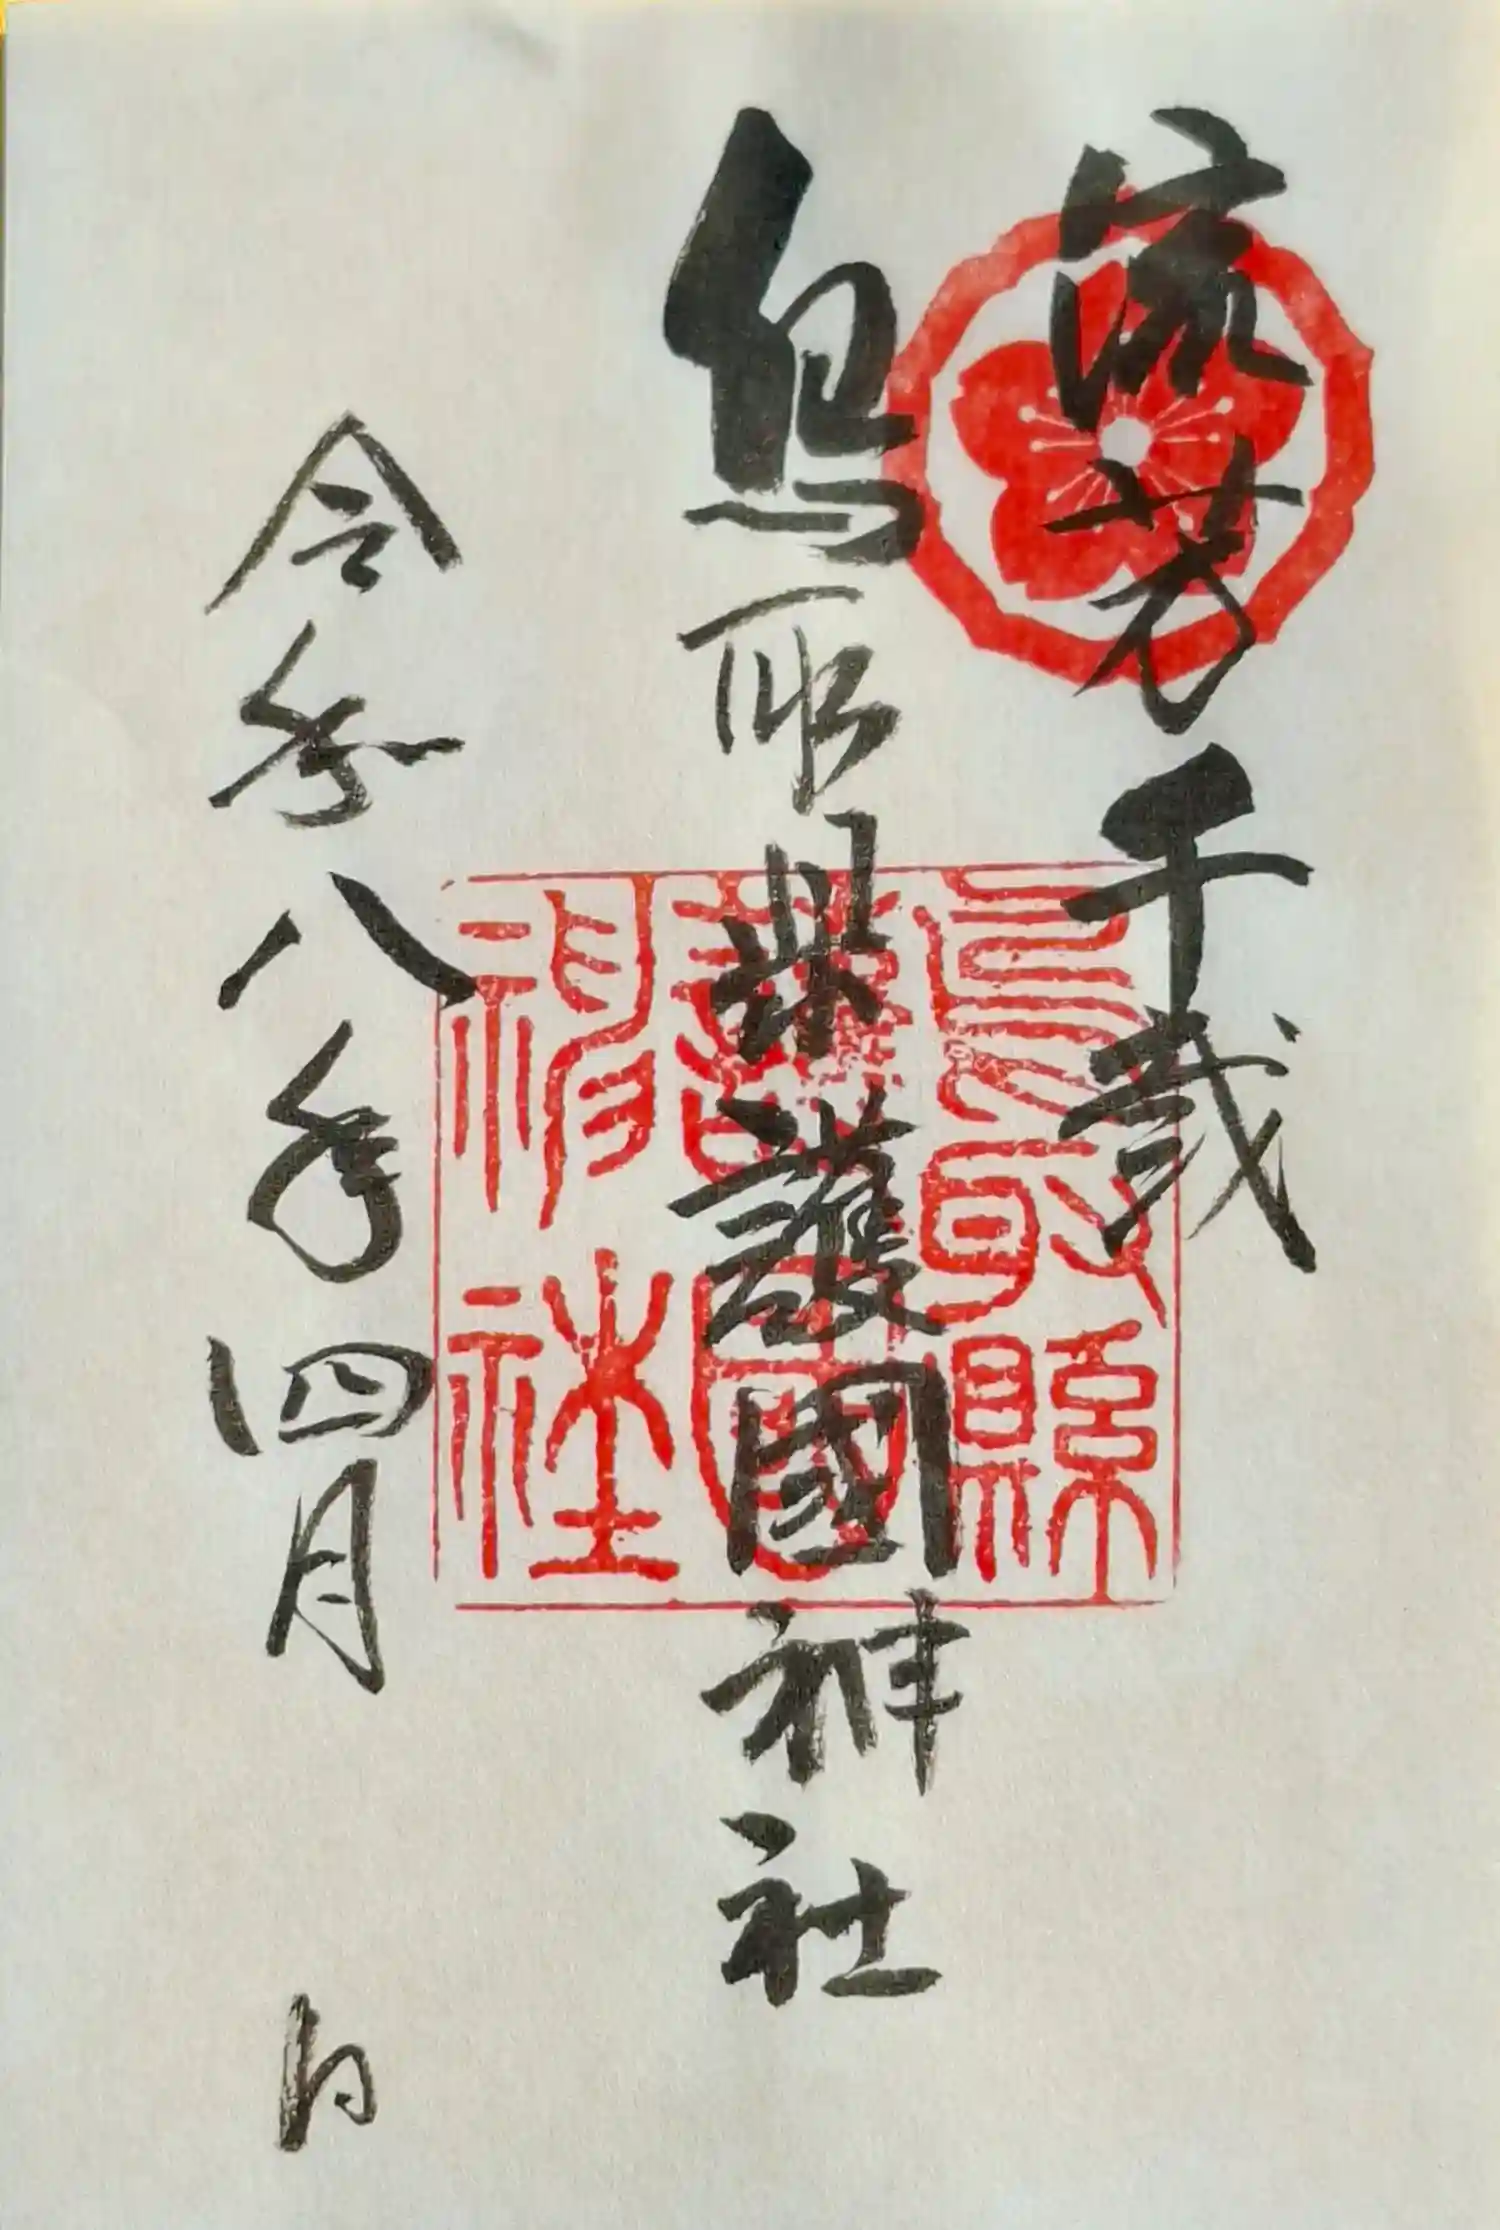 流芳千載
鳥取県護國神社
令和八年四月 日
鳥取縣
護國
神社